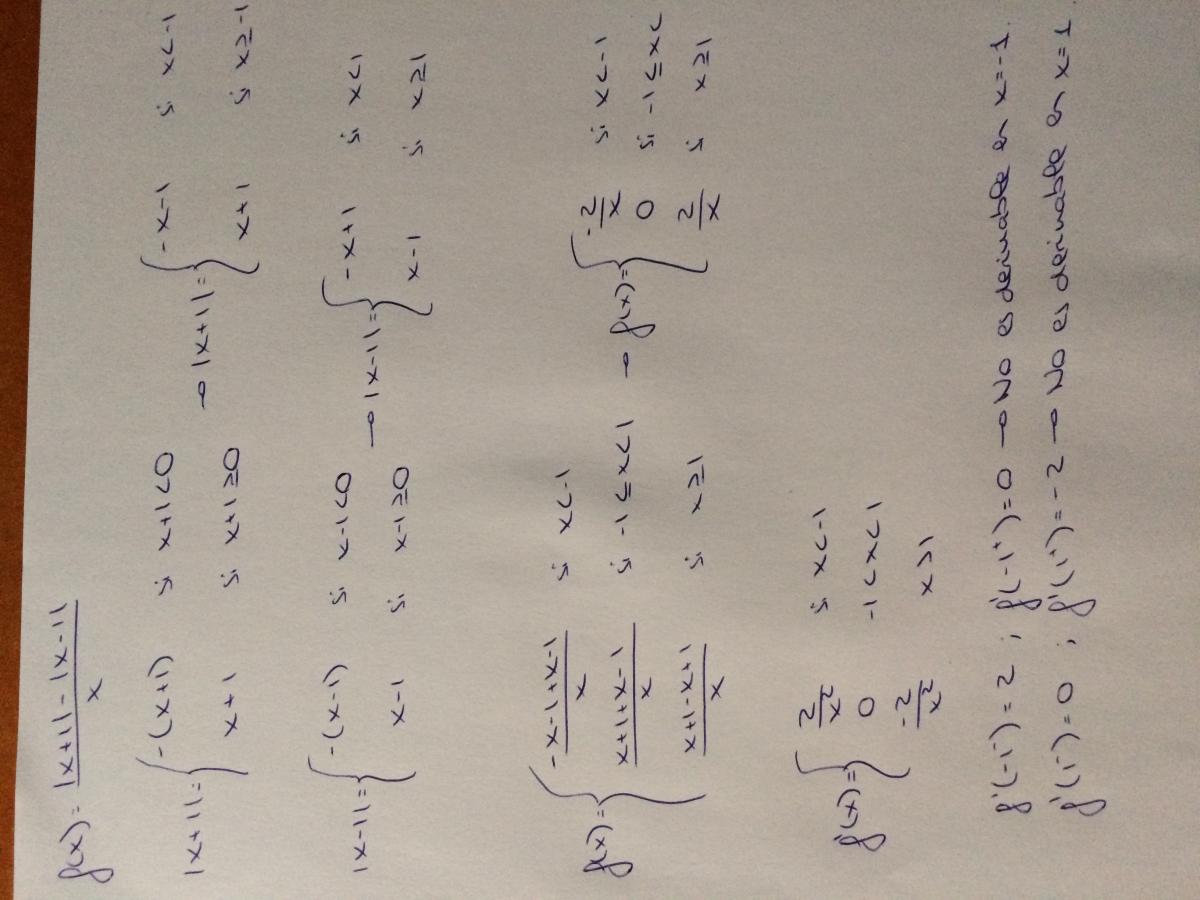 f(x) = (|x+1| - |x-1|) / x
|x+1| = { -(x+1) si x+1<0 → |x+1| = { -x-1 si x<-1
x+1 si x+1≥0 x+1 si x≥-1
|x-1| = { -(x-1) si x-1<0 → |x-1| = { -x+1 si x<1
x-1 si x-1≥0 x-1 si x≥1
f(x) = { (-x-1+x-1) / x si x<-1 → f(x) = { -2/x si x<-1
(x+1+x-1) / x si -1≤x<1 0 si -1≤x<
(x+1-x+1) / x si x≥1 2/x si x≥1
f'(x) = { 2/x² si x<-1
0 -1<x<1
-2/x² x>1
f'(-1⁻) = 2 ; f'(-1⁺) = 0 → No es derivable en x=-1.
f'(1⁻) = 0 ; f'(1⁺) = -2 → No es derivable en x=1